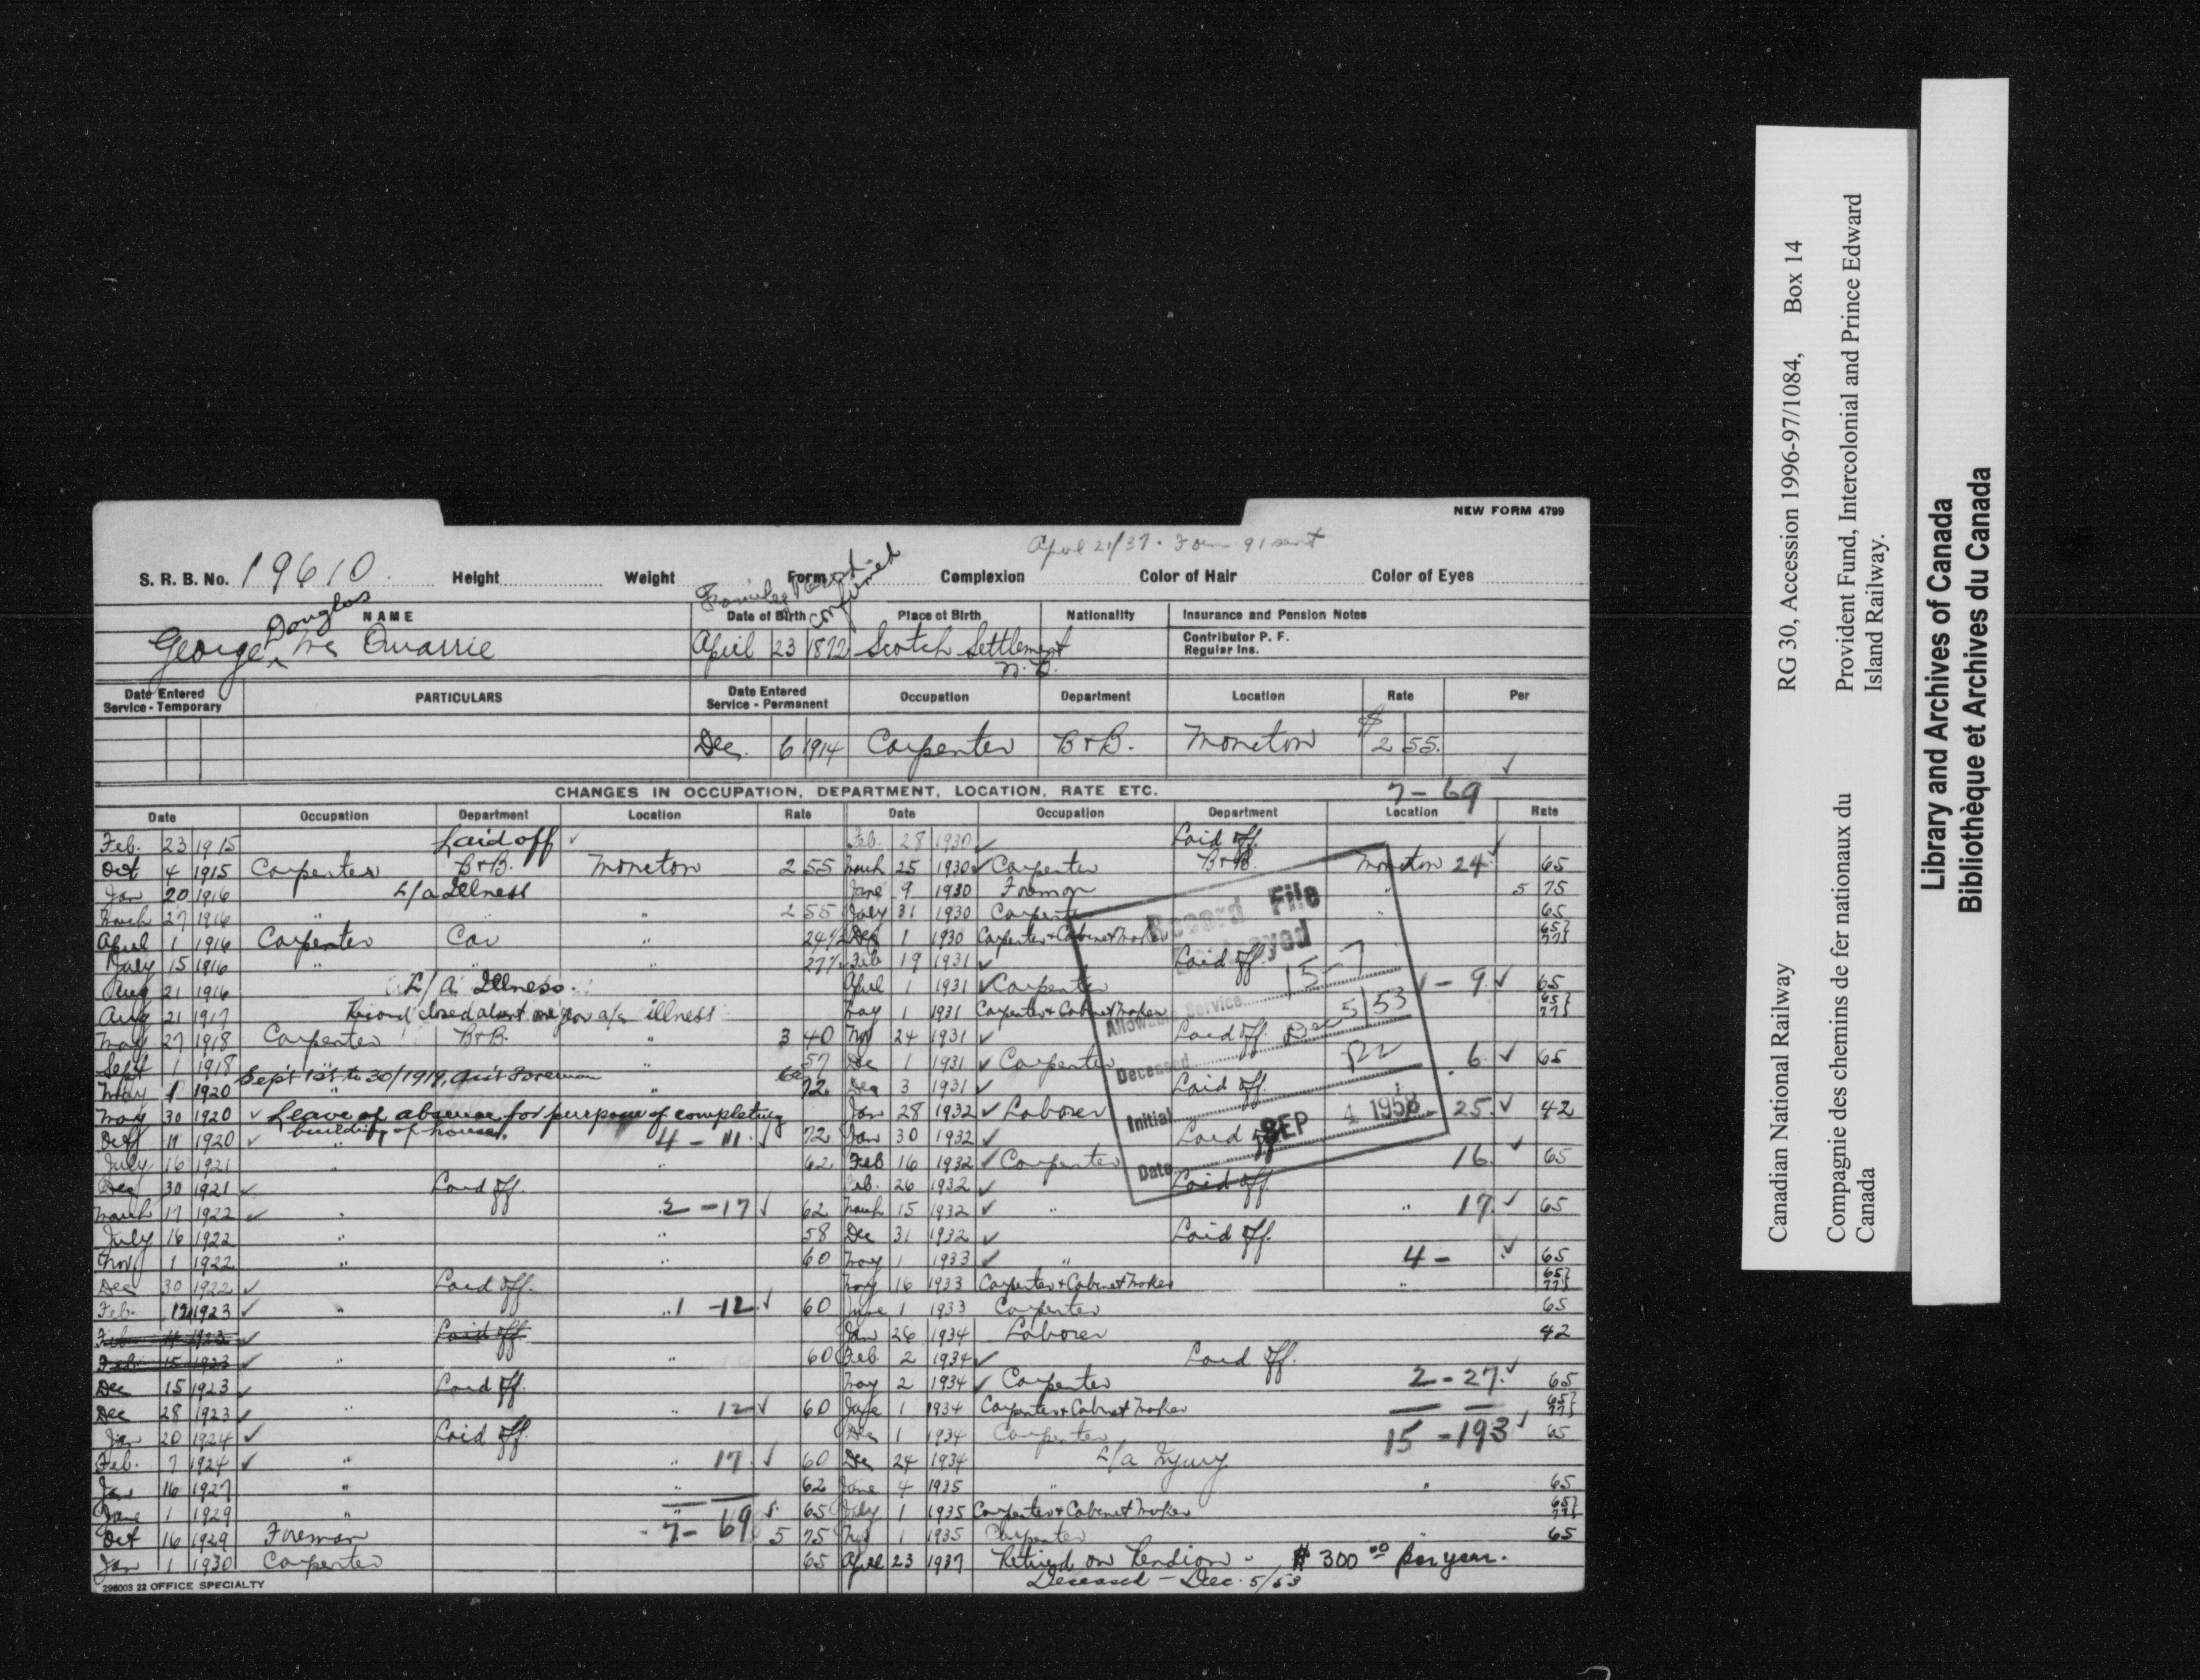 NEW FORM 4799
April 21/37. Form 91 sent
S. R. B. No. 19610 Height Weight Form Complexion Color of Hair Color of Eyes
Family Record confirmed
NAME Date of Birth Place of Birth Nationality Insurance and Pension Notes
George Douglas Mc Quarrie April 23 1872 Scotch Settlement N.B.
Contributor P. F.
Regular Ins.
Date Entered Service - Temporary PARTICULARS Date Entered Service - Permanent Occupation Department Location Rate Per
Dec. 6 1914 Carpenter B+B. Moncton $ 2 55 ✓
CHANGES IN OCCUPATION, DEPARTMENT, LOCATION, RATE ETC. 7-69
Date Occupation Department Location Rate
Feb. 23 1915 Laid off ✓
Oct 4 1915 Carpenter B+B. Moncton 2 55
Jan 20 1916 L/a Illness
March 27 1916 " " " 2 55
April 1 1916 Carpenter Car " 24½
July 15 1916 " " " 27½
Aug 21 1916 L/a Illness.
Aug 21 1917 Record closed absent one year a/c illness
May 27 1918 Carpenter B+B. " 3 40
Sept 1 1918 " 57
Sept 1st to 30/1919, Ass't Foreman
May 1 1920 " " 72
May 30 1920 ✓ Leave of absence for purpose of completing
building of house.
1920 ✓ " 4 - 11. ✓ 72
July 16 1921 " " 62
Dec 30 1921 ✓ Laid off.
March 17 1922 ✓ " 2 - 17 ✓ 62
July 16 1922 " " 58
Nov 1 1922 " " 60
Dec 30 1922 ✓ Laid off.
Feb. 12 1923 ✓ " " 1 - 12 ✓ 60
Feb 14 1923 ✓ Laid off
Feb 15 1923 ✓ " " 60
Dec 15 1923 ✓ Laid off
Dec 28 1923 ✓ " " 12 ✓ 60
Jan 20 1924 ✓ Laid off.
Feb. 7 1924 ✓ " " 17 ✓ 60
Jan 16 1927 " " 62
June 1 1929 " " 65
7 - 69
Oct 16 1929 Foreman 5 75
Jan 1 1930 Carpenter 65
298003 22 OFFICE SPECIALTY
Date Occupation Department Location Rate
Feb. 28 1930 ✓ Laid off.
March 25 1930 ✓ Carpenter B+B. Moncton 24 ✓ 65
June 9 1930 Foreman " 5 75
July 31 1930 Carpenter " 65
Dec 1 1930 Carpenter + Cabinet Maker 65} 77}
Feb 19 1931 ✓ Laid off
April 1 1931 ✓ Carpenter 1 - 9 ✓ 65
May 1 1931 Carpenter + Cabinet Maker 65} 77}
Nov 24 1931 ✓ Laid off
Dec 1 1931 ✓ Carpenter 6. ✓ 65
Dec 3 1931 ✓ Laid off.
Jan 28 1932 ✓ Laborer 25. ✓ 42
Jan 30 1932 ✓ Laid off
Feb 16 1932 ✓ Carpenter 16. ✓ 65
Feb. 26 1932 ✓ Laid off
March 15 1932 ✓ " " 17. ✓ 65
Dec 31 1932 ✓ Laid off.
May 1 1933 ✓ " 4 - ✓ 65
May 16 1933 Carpenter + Cabinet Maker " 65} 77}
June 1 1933 Carpenter 65
Jan 26 1934 Laborer 42
Feb 2 1934 ✓ Laid off.
May 2 1934 ✓ Carpenter 2 - 27. ✓ 65
June 1 1934 Carpenter + Cabinet Maker 65} 77}
Dec 1 1934 Carpenter 15 - 193 ✓ 65
Dec 24 1934 L/a Injury
June 4 1935 " " 65
July 1 1935 Carpenter + Cabinet Maker 65} 77}
Nov 1 1935 Carpenter 65
April 23 1937 Retired on Pension - $ 300 00 per year.
Deceased - Dec. 5/53
Record File
Destroyed
Allowable Service 15-7
Deceased Dec 5/53
Initial
Date SEP 4 1958
Canadian National Railway RG 30, Accession 1996-97/1084, Box 14
Compagnie des chemins de fer nationaux du Canada Provident Fund, Intercolonial and Prince Edward Island Railway.
Library and Archives of Canada
Bibliothèque et Archives du Canada